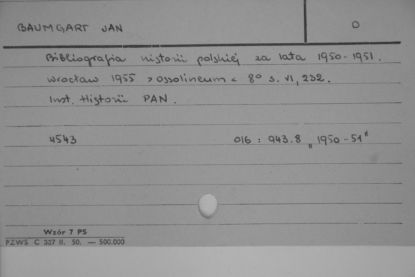 BAUMGART JAN O
Bibliografia historii polskiej za lata 1950-1951.
Wrocław 1955 >Ossolineum< 8° s. VI, 232.
Inst. Historii PAN.
4543 016 : 943.8 „1950-51"
Wzór 7 PS
PZWS C 327 II. 50. — 500.000